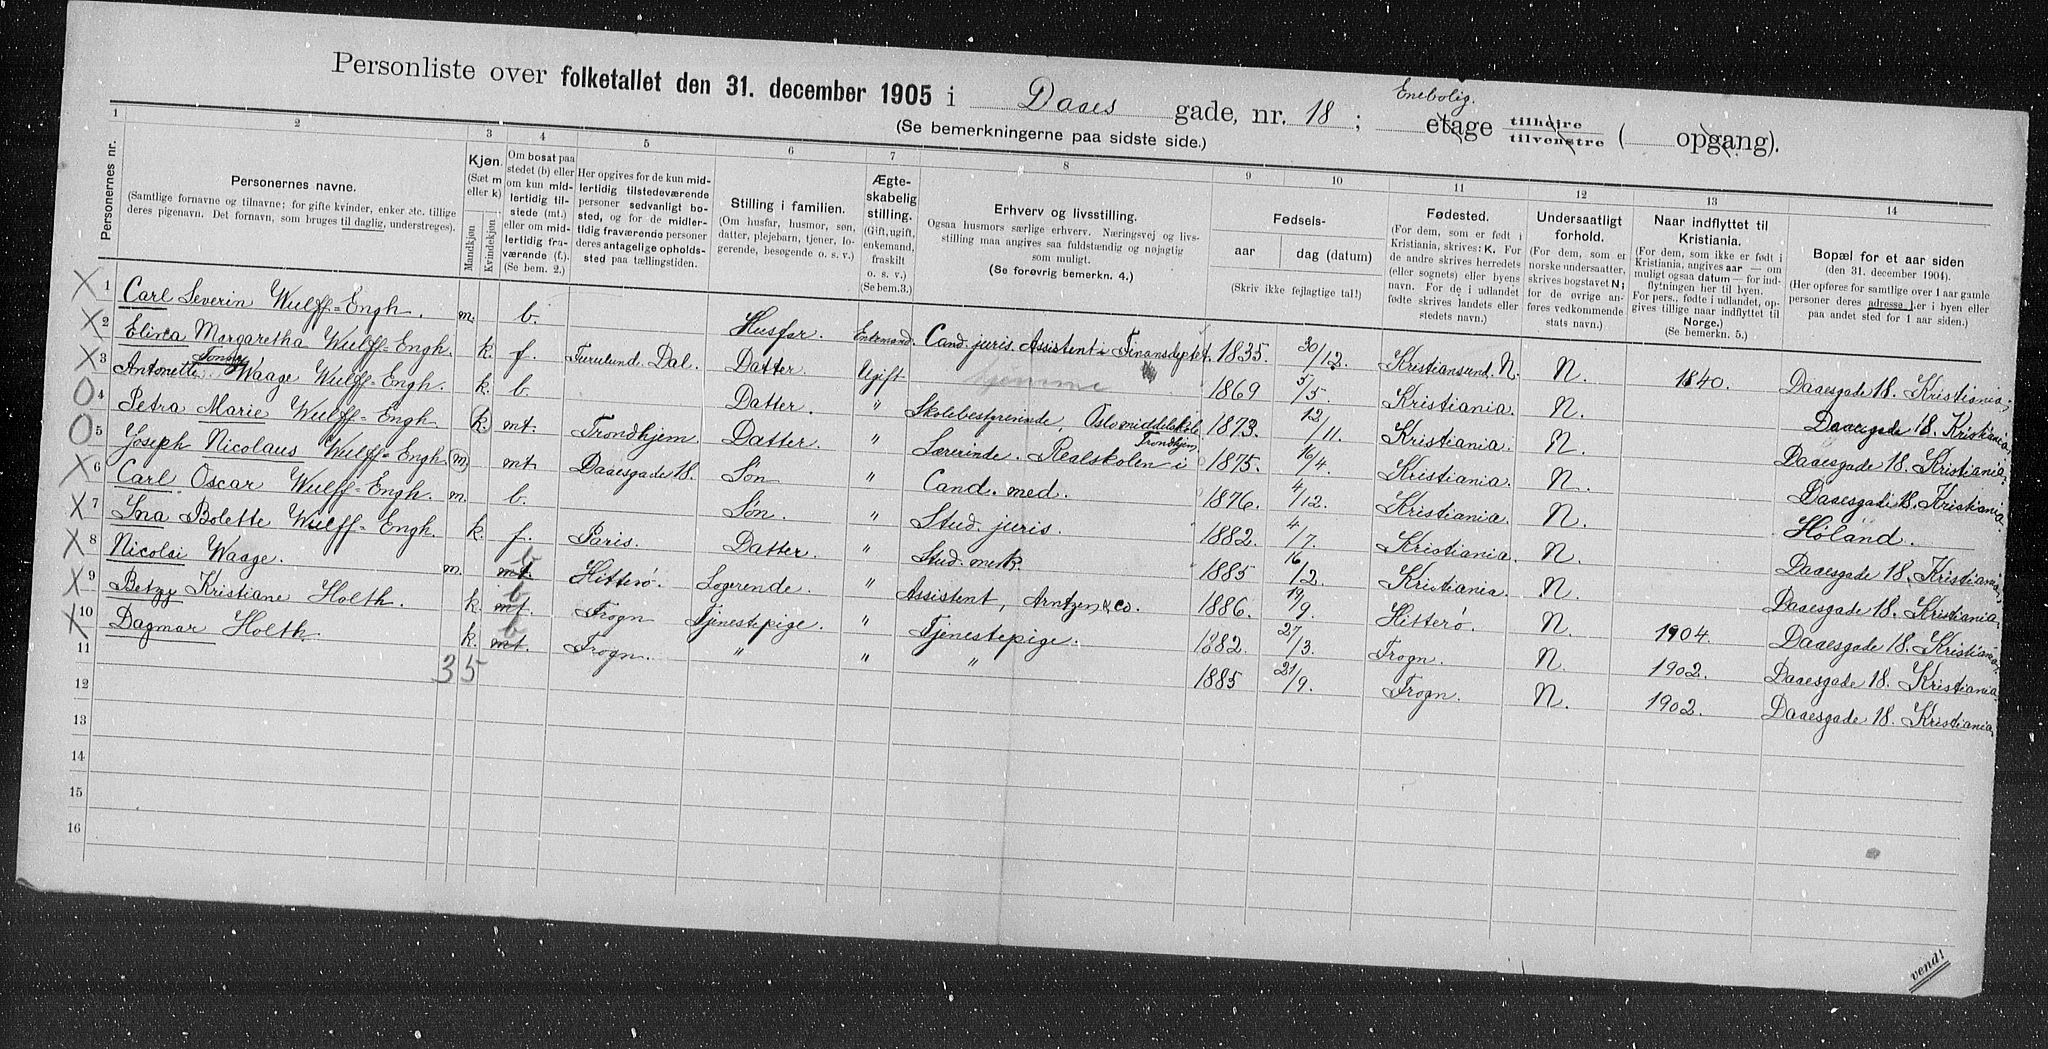 Enebolig.
Personliste over folketallet den 31. december 1905 i Daaes gade, nr. 18; etage tilhøire tilvenstre ( opgang).
(Se bemerkningerne paa sidste side.)
1 2 3 4 5 6 7 8 9 10 11 12 13 14
Personernes nr.
Personernes navne.
(Samtlige fornavne og tilnavne; for gifte kvinder, enker etc. tillige
deres pigenavn. Det fornavn, som bruges til daglig, understreges).
Kjøn.
(Sæt m
eller k)
Mandkjøn
Kvindekjøn
Om bosat paa
stedet (b) eller
om kun mid-
lertidig til-
stede (mt.)
eller om mid-
lertidig fra-
værende (f.).
(Se bem. 2.)
Her opgives for de kun mid-
lertidig tilstedeværende
personer sedvanligt bo-
sted, og for de midler-
tidig fraværende personer
deres antagelige opholds-
sted paa tællingstiden.
Stilling i familien.
(Om husfar, husmor, søn,
datter, plejebarn, tjener, lo-
gerende, besøgende o. s. v.)
Ægte-
skabelig
stilling.
(Gift, ugift,
enkemand,
fraskilt
o. s. v.)
(Se bem.3.)
Erhverv og livsstilling.
Ogsaa husmors særlige erhverv. Næringsvej og livs-
stilling maa angives saa fuldstændig og nøjagtig
som muligt.
(Se forøvrig bemerkn. 4.)
Fødsels-
aar dag (datum)
(Skriv ikke fejlagtige tal!)
Fødested.
(For dem, som er født i
Kristiania, skrives: K. For
de andre skrives herredets
(eller sognets) eller byens
navn. For de i udlandet
fødte skrives landets eller
stedets navn).
Undersaatligt
forhold.
(For dem, som er
norske undersaatter,
skrives bogstavet N;
for de øvrige an-
føres vedkommende
stats navn.)
Naar indflyttet til
Kristiania.
(For dem, som ikke er født i
Kristiania, angives aar — om
muligt ogsaa datum — for ind-
flytningen her til byen.
For pers., fødte i udlandet, op-
gives tillige naar indflyttet til
Norge.)
(Se bemerkn. 5.)
Bopæl for et aar siden
(den 31. december 1904).
(Her opføres for samtlige over 1 aar gamle
personer deres adresse her i byen eller
paa andet sted for 1 aar siden.)
X 1 Carl Severin Wulff=Engh. m. b. Husfar. Enkemand. Cand. juris. Assistent i Finansdeptet. 1835. 30/12. Kristiansund N. N. 1840. Daaesgade 18. Kristiania.
X 2 Elisa Margaretha Wulff=Engh. k. f. Furulund Dal. Datter Ugift hjemme 1869 5/5. Kristiania. N. Daaesgade 18. Kristiania.
X 3 Antonette Waage Wulff=Engh. k. b. Datter. " Skolebestyrerinde, Oslo middelskole 1873. 12/11. Kristiania. N. Daaesgade 18. Kristiania.
O 4 Petra Marie Wulff=Engh. k. mt. Trondhjem Datter " Lærerinde. Realskolen i Trondhjem 1875. 16/4. Kristiania. N. Daaesgade 18. Kristiania.
O 5 Joseph Nicolaus Wulff=Engh. m. mt. Daaesgade 18. Søn " Cand. med. 1876. 4/12. Kristiania. N. Høland.
X 6 Carl Oscar Wulff=Engh. m. b. Søn. " Stud. juris. 1882. 4/7. Kristiania. N. Daaesgade 18. Kristiania.
X 7 Ina Bolette Wulff=Engh. k. f. Paris. Datter. " Stud. 1885 16/2. Kristiania. N. Daaesgade 18. Kristiania.
X 8 Nicolai Waage. m. b mt. Hitterø. Logerende. " Assistent, Arntzen & Co. 1886. 19/9. Hitterø. N. 1904. Daaesgade 18. Kristiania.
X 9 Betzy Kristiane Holth. k. b mt. Frogn Tjenestepige. " Tjenestepige. 1882. 27/3. Frogn. N. 1902. Daaesgade 18. Kristiania.
X 10 Dagmar Holth. k. b mt. Frogn. " " " 1885 21/9. Frogn. N. 1902. Daaesgade 18. Kristiania.
11 35
12
13
14
15
16
vend!